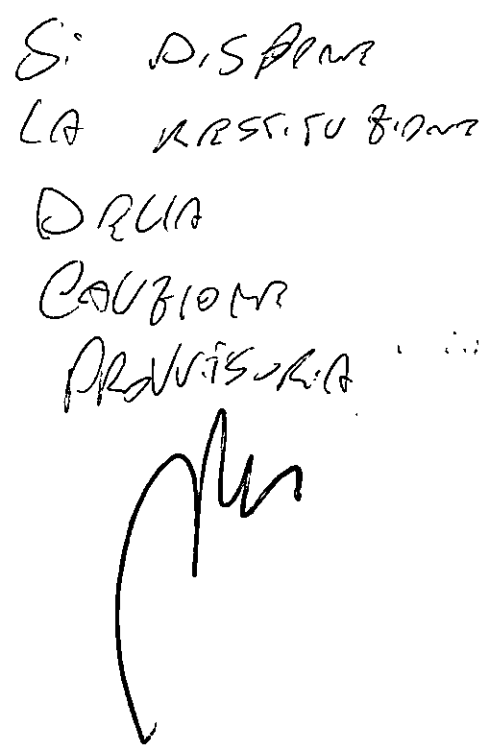 Si DISPONE
LA RESTITUZIONE
DELLA
CAUZIONE
PROVVISORIA